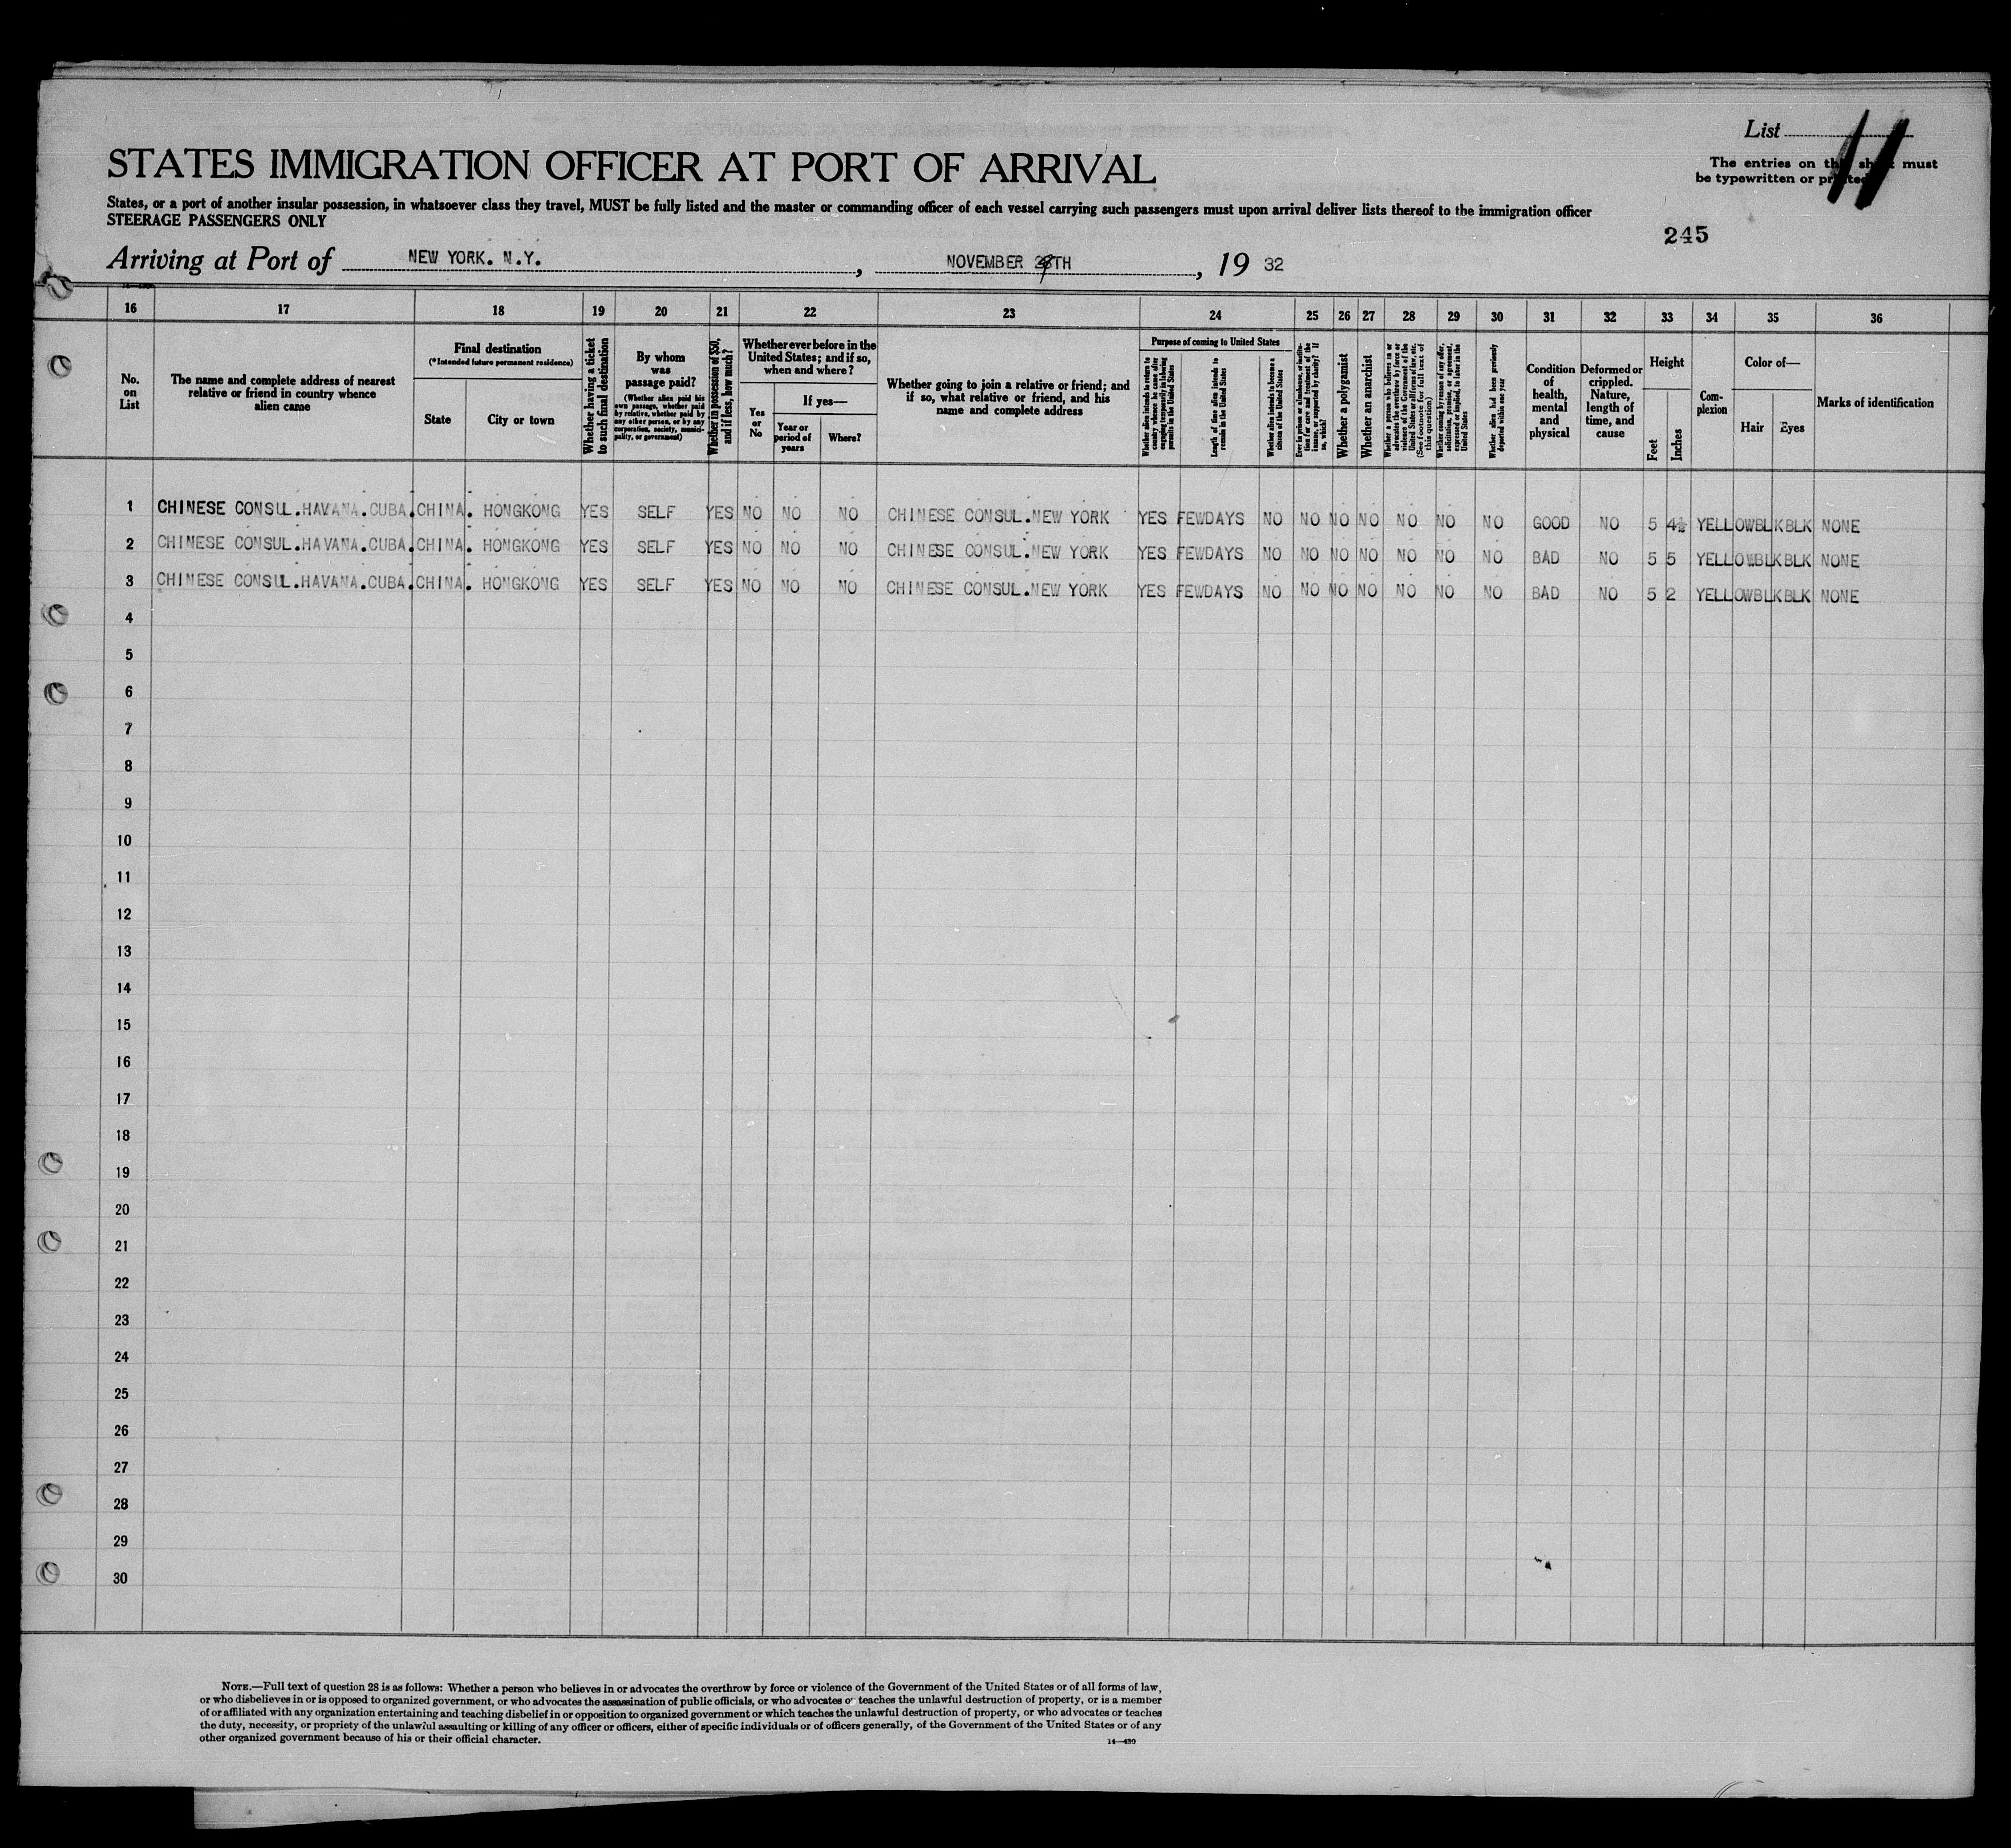 List 11
The entries on this sheet must
be typewritten or printed
STATES IMMIGRATION OFFICER AT PORT OF ARRIVAL
States, or a port of another insular possession, in whatsoever class they travel, MUST be fully listed and the master or commanding officer of each vessel carrying such passengers must upon arrival deliver lists thereof to the immigration officer
STEERAGE PASSENGERS ONLY
245
Arriving at Port of NEW YORK. N.Y. , NOVEMBER TH , 19 32
16 17 18 19 20 21 22 23 24 25 26 27 28 29 30 31 32 33 34 35 36
No. on List
The name and complete address of nearest relative or friend in country whence alien came
Final destination
(*Intended future permanent residence)
State
City or town
Whether having a ticket to such final destination
By whom was passage paid?
(Whether alien paid his own passage, whether paid by relative, whether paid by any other person, or by any corporation, society, municipality, or government)
Whether in possession of $50, and if less, how much?
Whether ever before in the United States; and if so, when and where?
Yes or No
If yes—
Year or period of years
Where?
Whether going to join a relative or friend; and if so, what relative or friend, and his name and complete address
Purpose of coming to United States
Whether alien intends to return to country whence he came after engaging temporarily in laboring pursuits in the United States
Length of time alien intends to remain in the United States
Whether alien intends to become a citizen of the United States
Ever in prison or almshouse, or institution for care and treatment of the insane, or supported by charity? If so, which?
Whether a polygamist
Whether an anarchist
Whether a person who believes in or advocates the overthrow by force or violence of the Government of the United States or all forms of law, etc. (See footnote for full text of this question)
Whether coming by reason of any offer, solicitation, promise, or agreement, expressed or implied, to labor in the United States
Whether alien had been previously deported within one year
Condition of health, mental and physical
Deformed or crippled. Nature, length of time, and cause
Height
Feet
Inches
Complexion
Color of—
Hair
Eyes
Marks of identification
1 CHINESE CONSUL.HAVANA.CUBA. CHINA. HONGKONG YES SELF YES NO NO NO CHINESE CONSUL.NEW YORK YES FEWDAYS NO NO NO NO NO NO NO GOOD NO 5 4½ YELLOW BLK BLK NONE
2 CHINESE CONSUL.HAVANA.CUBA. CHINA. HONGKONG YES SELF YES NO NO NO CHINESE CONSUL.NEW YORK YES FEWDAYS NO NO NO NO NO NO NO BAD NO 5 5 YELLOW BLK BLK NONE
3 CHINESE CONSUL.HAVANA.CUBA. CHINA. HONGKONG YES SELF YES NO NO NO CHINESE CONSUL.NEW YORK YES FEWDAYS NO NO NO NO NO NO NO BAD NO 5 2 YELLOW BLK BLK NONE
4
5
6
7
8
9
10
11
12
13
14
15
16
17
18
19
20
21
22
23
24
25
26
27
28
29
30
NOTE.—Full text of question 28 is as follows: Whether a person who believes in or advocates the overthrow by force or violence of the Government of the United States or of all forms of law,
or who disbelieves in or is opposed to organized government, or who advocates the assassination of public officials, or who advocates or teaches the unlawful destruction of property, or is a member
of or affiliated with any organization entertaining and teaching disbelief in or opposition to organized government or which teaches the unlawful destruction of property, or who advocates or teaches
the duty, necessity, or propriety of the unlawful assaulting or killing of any officer or officers, either of specific individuals or of officers generally, of the Government of the United States or of any
other organized government because of his or their official character.
14—430